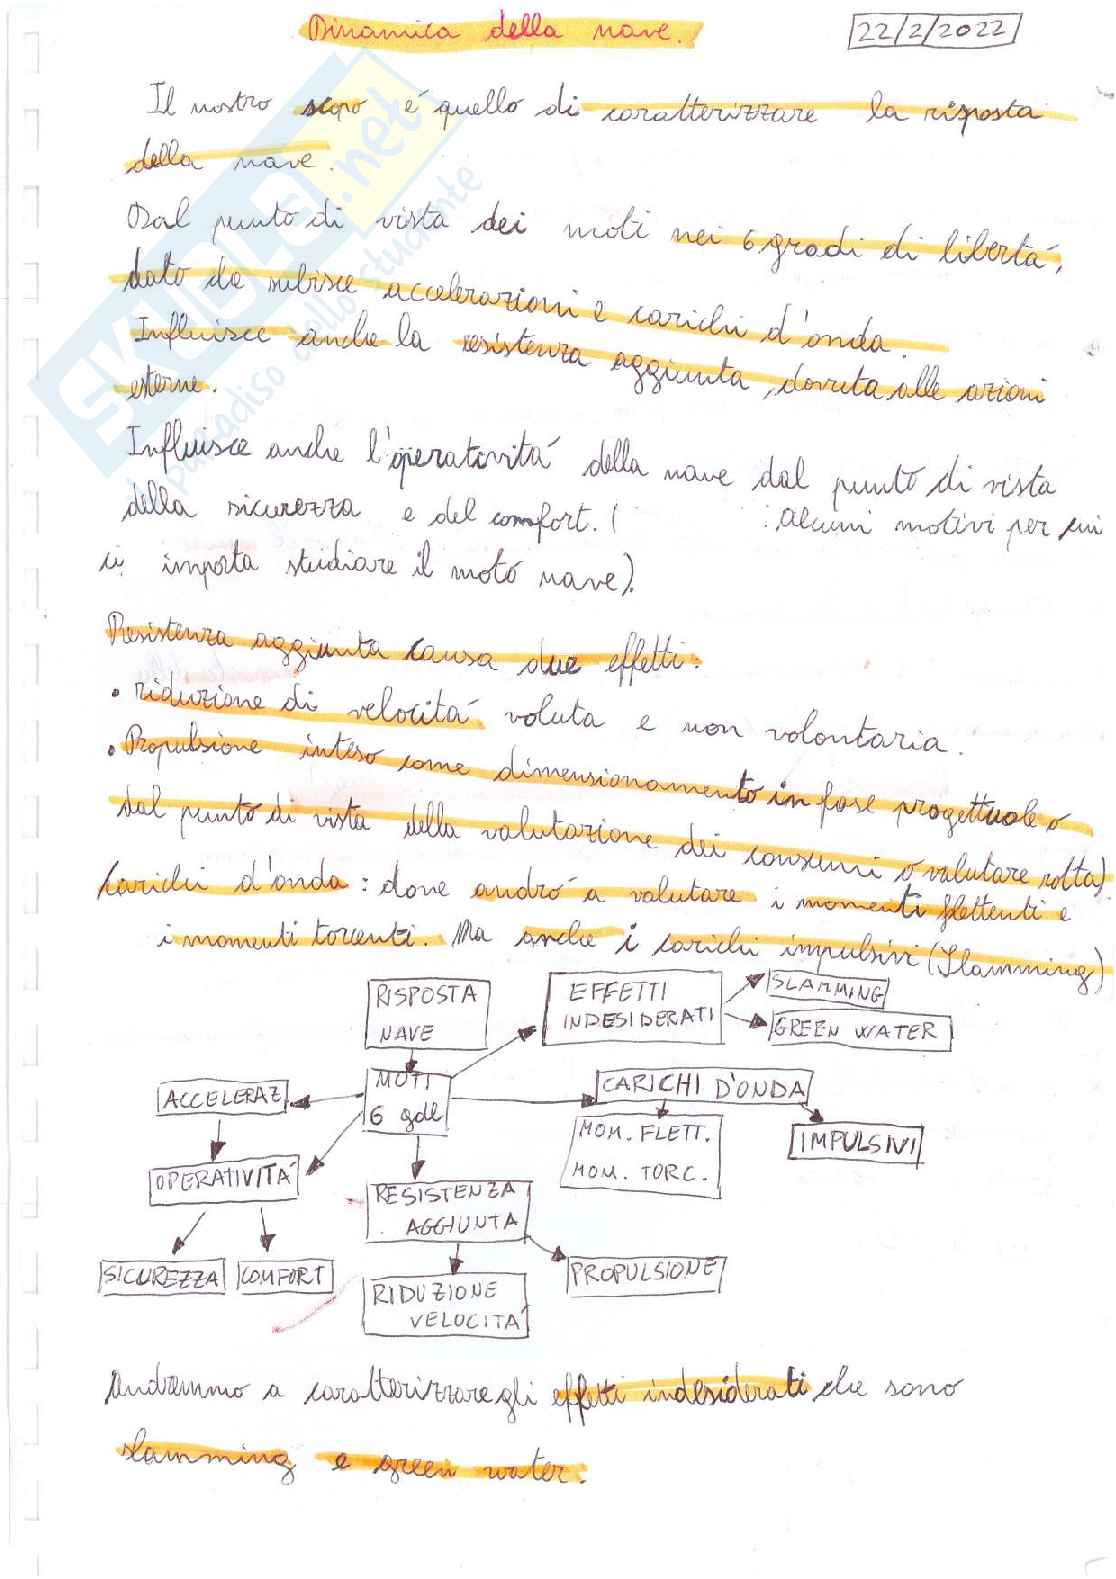 Dinamica della nave.
22/2/2022
Il nostro scopo é quello di caratterizzare la risposta
della nave.
Dal punto di vista dei moti nei 6 gradi di libertá,
dato da subisce accelerazioni e carichi d'onda.
Influisce anche la resistenza aggiunta, dovuta alle azioni
esterne.
Influisce anche l'operativitá della nave dal punto di vista
della sicurezza e del comfort. ( : Alcuni motivi per cui
ci importa studiare il moto nave).
Resistenza aggiunta causa due effetti:
• riduzione di velocitá voluta e non volontaria.
• Propulsione inteso come dimensionamento in fase progettuale o
dal punto di vista della valutazione dei consumi o valutare rotta).
Carichi d'onda: dove andró a valutare i momenti flettenti e
i momenti torcenti. Ma anche i carichi impulsivi (Slamming)
RISPOSTA
NAVE
EFFETTI
INDESIDERATI
SLAMMING
GREEN WATER
MOTI
6 gdl
ACCELERAZ
CARICHI D'ONDA
MOM. FLETT.
MOM. TORC.
IMPULSIVI
OPERATIVITÁ
RESISTENZA
AGGIUNTA
SICUREZZA
COMFORT
RIDUZIONE
VELOCITÁ
PROPULSIONE
Andremmo a caratterizzare gli effetti indesiderati che sono
slamming e green water.
SKUOLA.net
paradiso dello studente